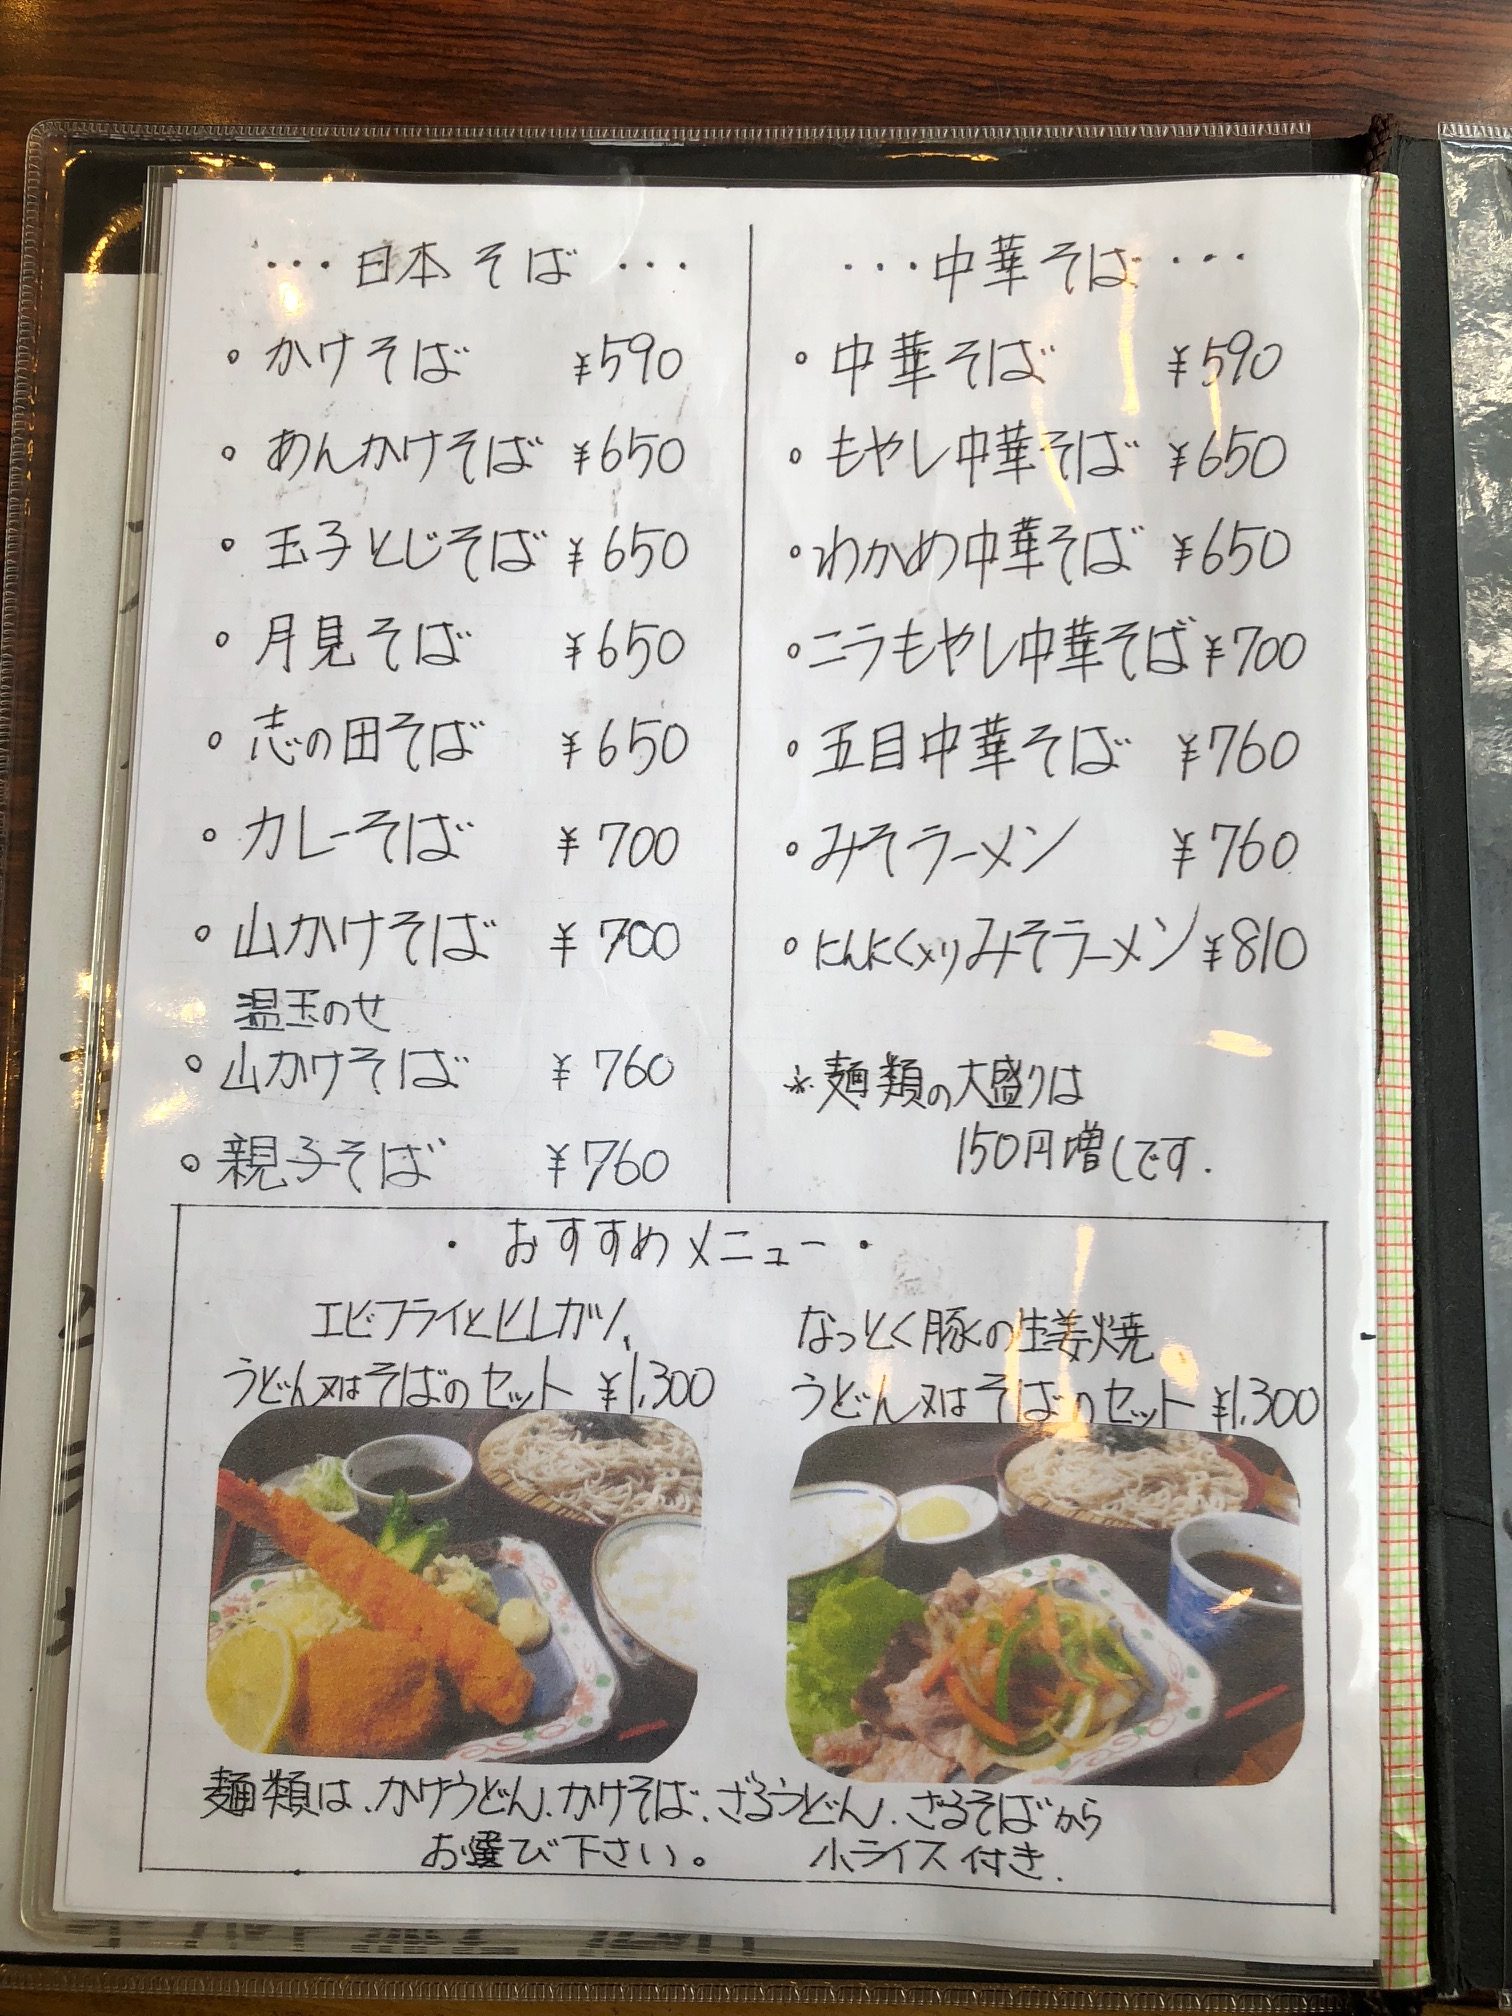 ・・・日本そば・・・
。かけそば ¥590
。あんかけそば ¥650
。玉子とじそば ¥650
。月見そば ¥650
。志の田そば ¥650
。カレーそば ¥700
。山かけそば ¥700
温玉のせ
。山かけそば ¥760
。親子そば ¥760
・・・中華そば・・・
。中華そば ¥590
。もやし中華そば ¥650
。わかめ中華そば ¥650
。ニラもやし中華そば ¥700
。五目中華そば ¥760
。みそラーメン ¥760
。にんにくメリみそラーメン ¥810
※麺類の大盛りは
150円増しです.
・おすすめメニュー・
エビフライとヒレカツ、
うどん又はそばのセット ¥1,300
なっとく豚の生姜焼
うどん又はそばのセット ¥1,300
麺類は、かけうどん、かけそば、ざるうどん、ざるそばから
お選び下さい。 小ライス付き.